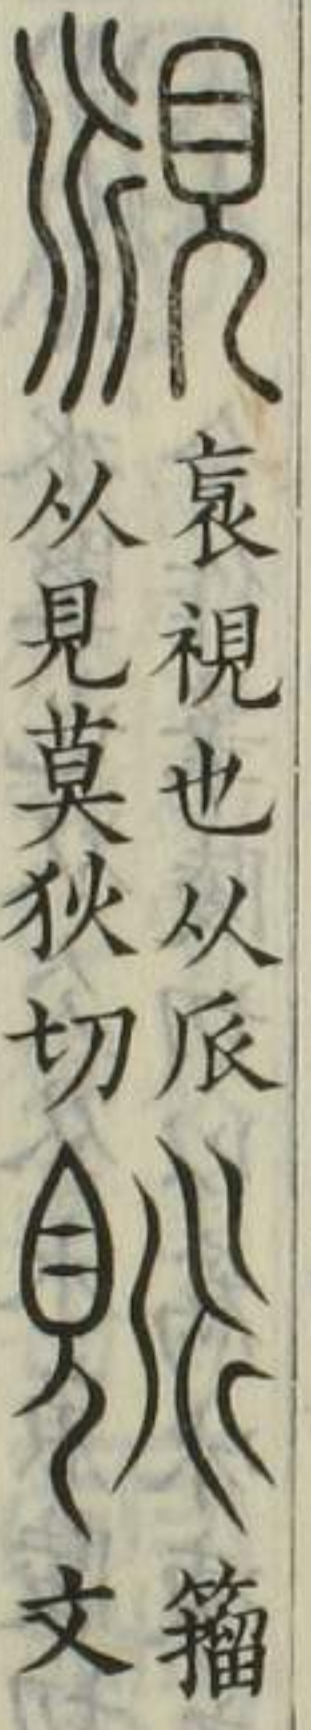 覛
衺視也从𠂢
从見莫狄切
𧠟
籀
文